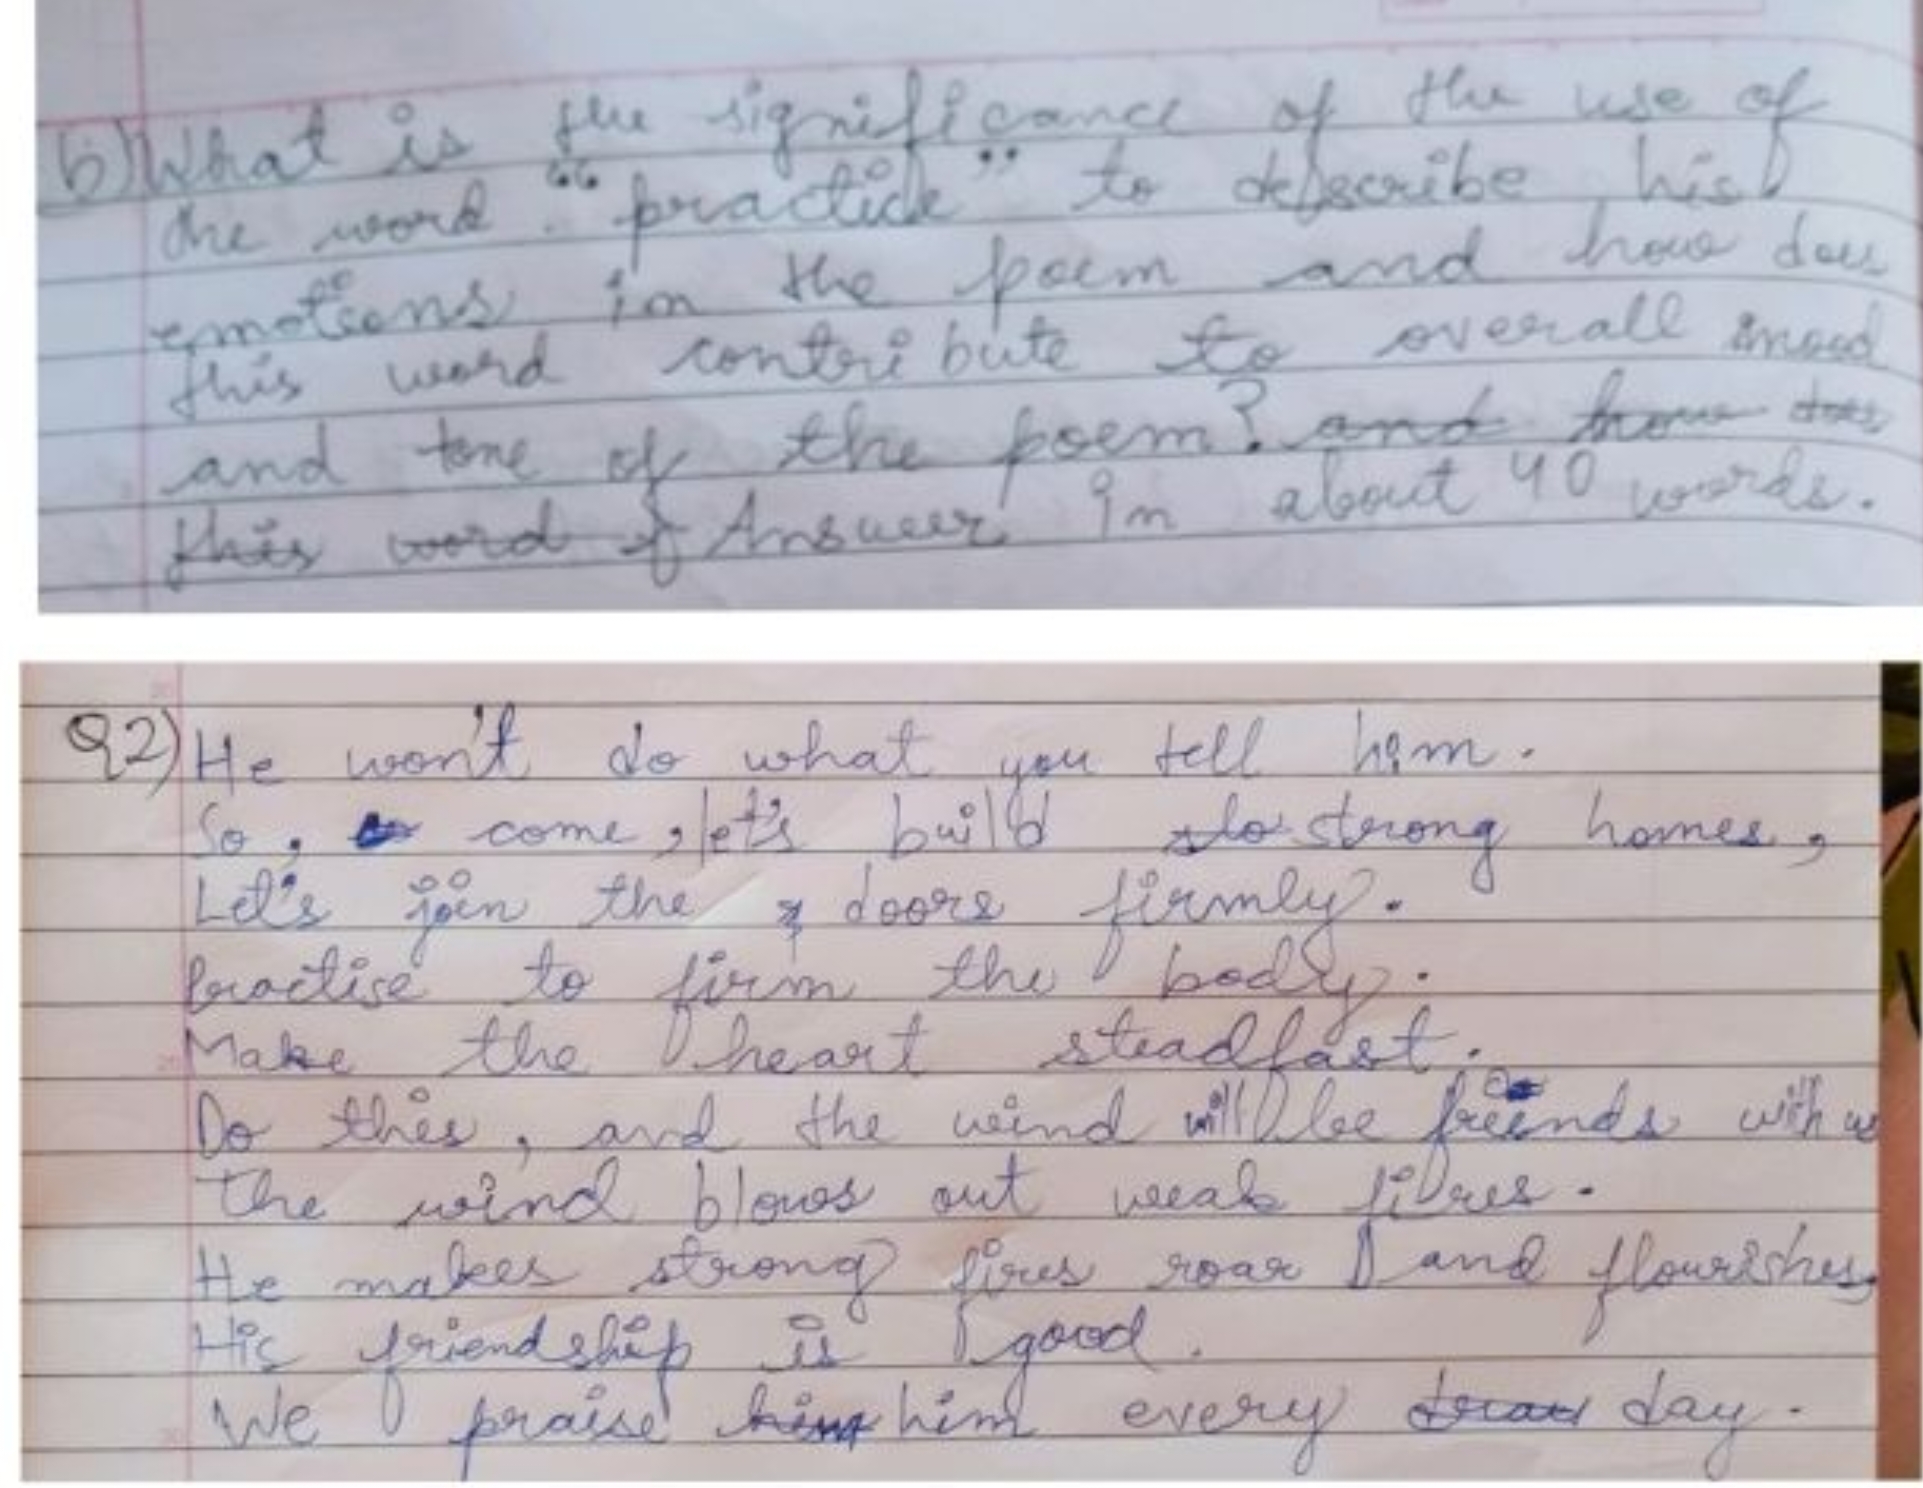 b) What is the significance of the use of
the word "practice" to describe his
emotions in the poem and how does
this word contribute to overall mood
and tone of the poem? and how does
this word of Answer in about 40 words.
Q2) He won't do what you tell him.
So, come, let's build strong homes,
Let's join the doors firmly.
Practise to firm the body.
Make the heart steadfast.
Do this, and the wind will be friends with us
The wind blows out weak fires.
He makes strong fires roar and flourishes.
His friendship is good.
We praise him him every day.